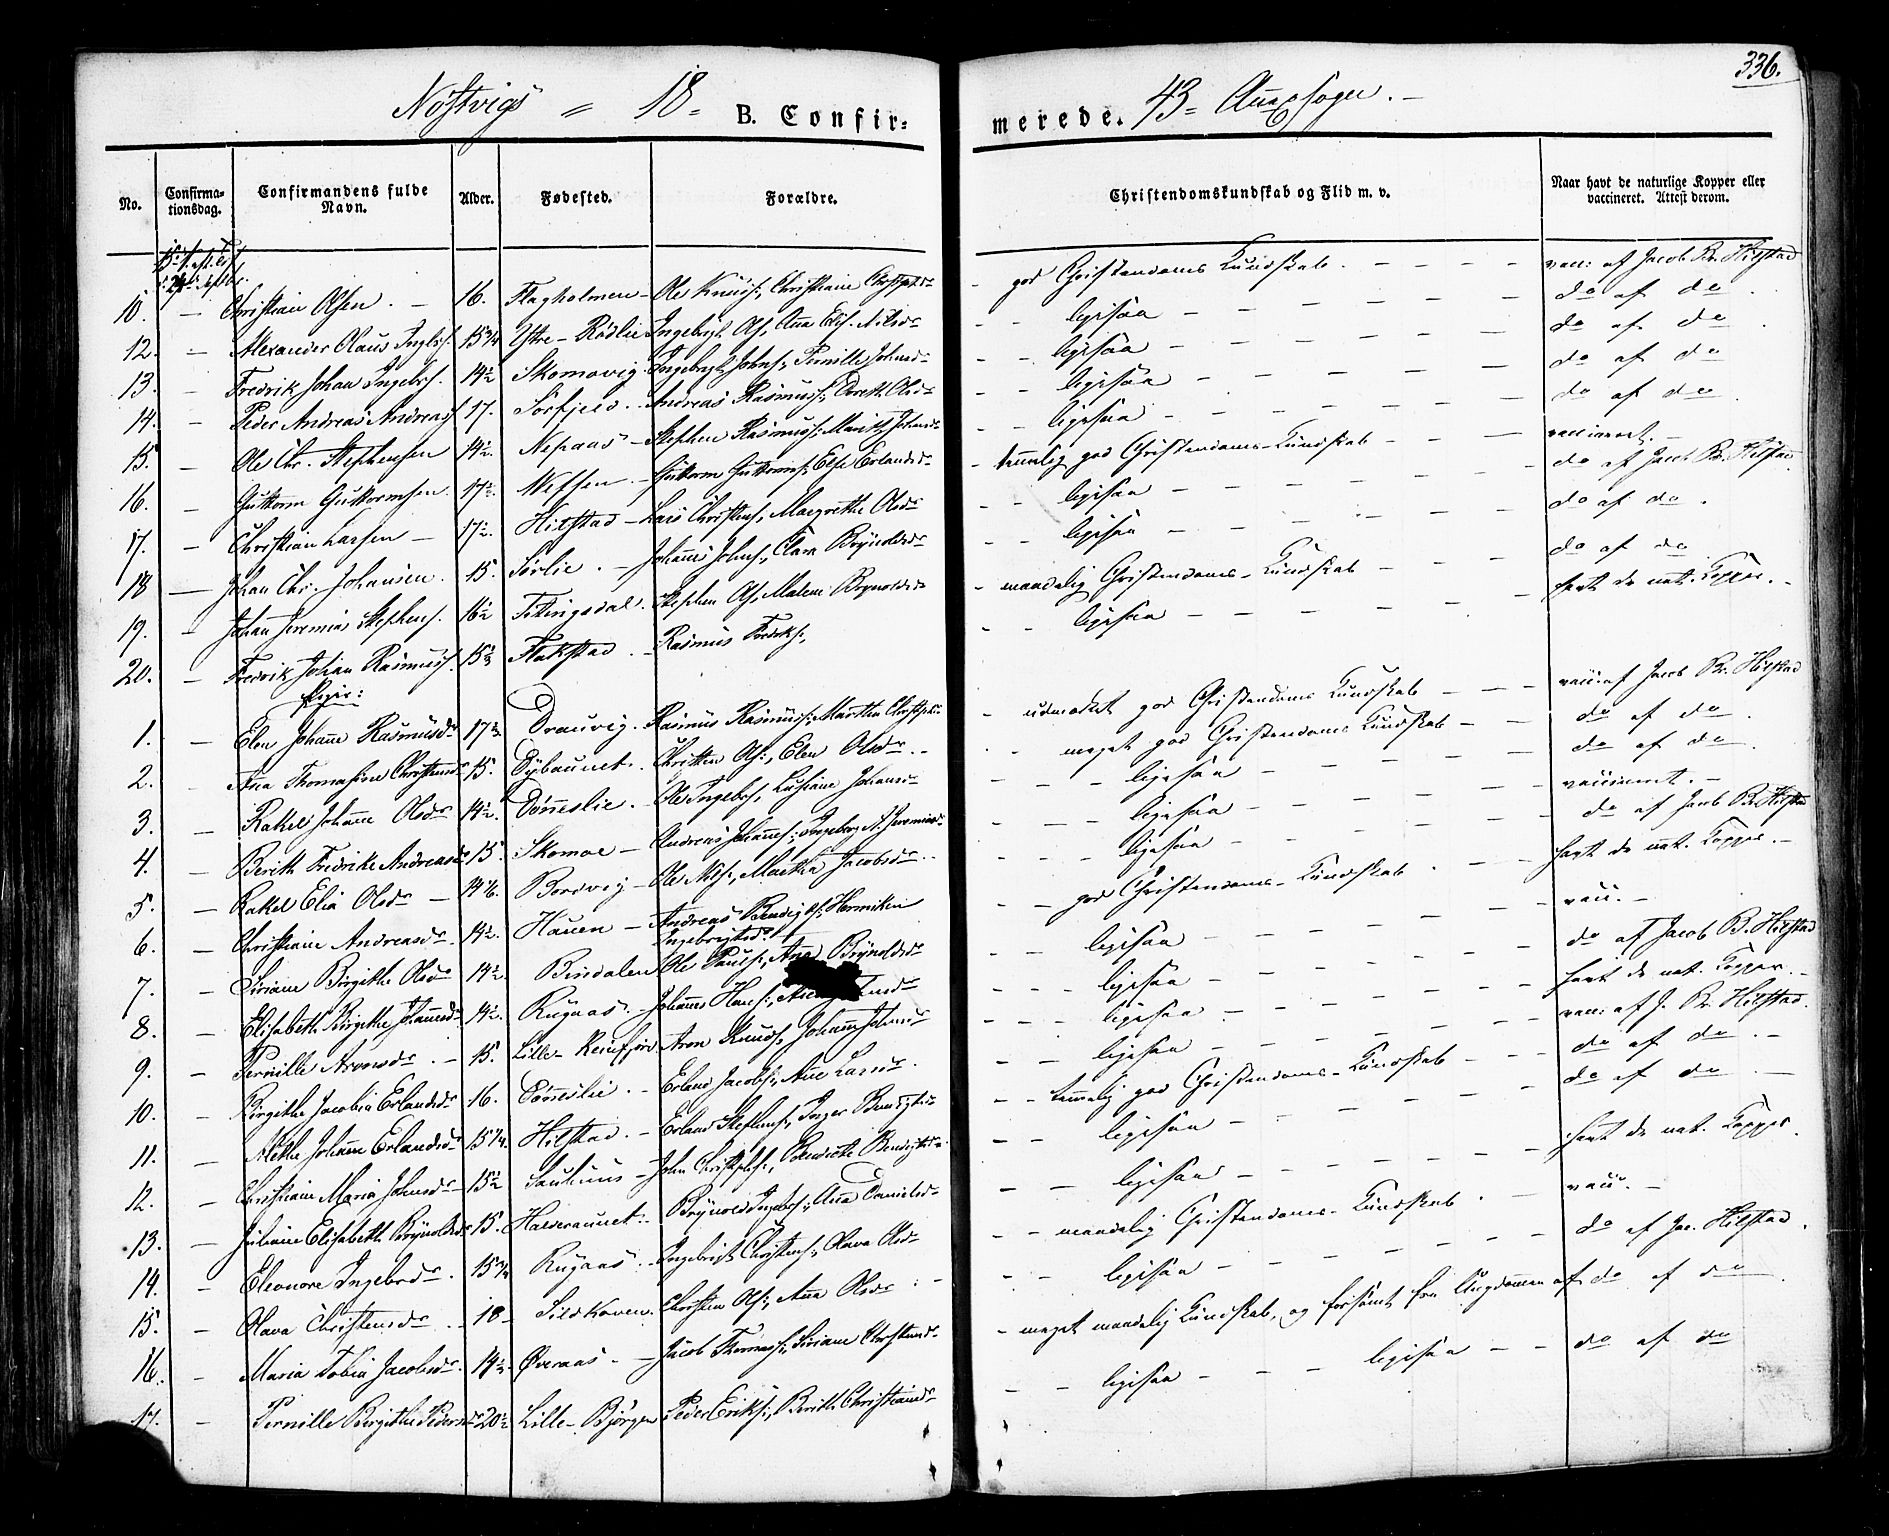 336.
Nøstvigs = 18 = B. Confirmerede. 43 = Annexsogn. -
No. Confirmationsdag. Confirmandens fulde Navn. Alder. Fødested. Forældre. Christendomskundskab og Flid m. v. Naar havt de naturlige Kopper eller vaccineret. Attest derom.
10. - Christian Olsen. - 16. Flagholmen - Ole Knuds:, Christiane - god Christendoms Kundskab. - - - - vac: af Jacob Br. Hilstad
12. - Alexander Olaus 15 3/4 Ytre-Rødlie Ingebrigt Ols:, Ana Nilsdr - - ligesaa - - - - - - do af do.
13. - Fredrik Johan Ingebrs. 14 1/2 Skomovig Ingebrigt Johns:, Pernille Johnsdr - - ligesaa - - - - - do af do.
14. - Peder Andreas Andreass 17. Sørfjeld. Andreas Rasmuss:, Doreth. Olsdr - - ligesaa - - - - - do af do
15. - Ole Chr. Stephensen 14 1/2. Nepaas - Stephen Rasmuss:, Marith Johnsdr - - ligesaa - - - - - do af do
16. - Guttorm Guttormsen 17 1/2. Wefsen. - Guttorm Guttorms:, Else Erlandsdr - temmelig god Christendoms-Kundskab - - - vaccineret. -
17. - Christian Larsen - 17 1/2. Hilstad - Lars Christens:, Margrethe Olsdr - - ligesaa - - - - - do af Jacob Br. Hilstad
18 - Johan Chr. Johansen. 15. Sørlie. - Johannes Johns:, Clara Brynoldsdr - - ligesaa - - - - - do af do.
19. - Johan Jeremias Stephens. 16 1/2 Tettingsdal. Stephen Ols:, Malene Brynoldsdr - maadelig Christendoms-Kundskab - - - do af do
20. - Fredrik Johan Rasmuss. 15 1/2 Flakstad. - Rasmus Fredriks:, - - ligesaa - - - - - havt de nat. Kopper. -
Piger:
1. - Elen Johanne Rasmusdr 17 Drauvig. Rasmus Rasmuss:, Martha - udmærket god Christendoms Kundskab - - - vacc: af Jacob Br. Hilstad
2. - Ana Thomasine Christensdr 15. Dybaunet. Christen Ols:, Elen Olsdr. - - meget god Christendoms Kundskab - - do af do.
3. - Rakel Johanne Olsdr 14 1/2. Dønneslie. - Ole Ingebrs, Lusiane Johansdr - - ligesaa - - - - - do af do.
4. - Berith Fredrike Andreasdr 15. Skomoe - Andreas Johannes:, Ingeborg A. Jeremiasdr - - ligesaa - - - - - vaccineret. -
5. - Rakel Elia Olsdr - 14 Bordvig - Ole Nils:, Martha Jacobsdr. - - - ligesaa - - - - - do af Jacob Br. Hilstad
6. - Christiane Andreasdr. 14 1/2. Hauen - Andreas Bendigts:, Henniken Ingebrigtsdr - - god Christendoms-Kundskab - - - havt de nat. Kopper. -
7. - Siriane Birgithe Olsdr 14 1/2. Bindalen Ole Pauls:, Ana Brynoldsdr - - ligesaa - - - - - vacc. -
8. - Elisabeth Birgithe Johannesdr 14 1/2. Rugaas. - Johannes Hans:, - - ligesaa - - - - - do af Jacob B. Hilstad
9. - Pernille Aronsdr. - 15. Lille- Aron Knuds:, Johanna Johnsdr - - ligesaa - - - - - havt de nat. Kopper. -
10. - Birgithe Jacobia Erlandsdr 16. Dønneslie. - Erland Jacobs:, Ane Larsdr. - - ligesaa - - - - - vacc: af J. Br. Hilstad.
11. - Methe Johanne Erlandsdr 15 1/4. Hilstad. - Erland Steffens:, Inger Bendigtsdr - - temmelig god Christendoms-Kundskab - - - do af do. -
12. - Christiane Maria Johnsdr 15 1/2 - John Christophs:, Benedicte Bendigtsdr - - ligesaa - - - - - do af do. -
13. - Juliane Elisabeth Brynoldsdr 15. Halderaunet. Brynold Ingebrs:, Ana Danielsdr - - ligesaa - - - - - havt de nat. Kopper.
14. - Eleonore Ingebrdr. 15 3/4 Rugaas. - Ingebrigt Christens:, Olava Olsdr - - maadelig Christendoms-Kundskab - - vacc. -
15. - Olava Christensdr. 18 - Sildhoven. Christen Ols:, Ana Olsdr - - ligesaa - - - - - do af Jac. Hilstad.
16. - Maria Tobia Jacobsdr. 14 1/2. Øveraas. - Jacob Thomass:, Siriane Christensdr - meget maadelig Kundskab, og forsømt fra Ungdommen af do af do.
17. - Pernille Birgithe Pedersdr 20 1/2 Lille-Bjørgen Peder Eriks:, Berith Christiansdr - - ligesaa - - - ligesaa - - do af do